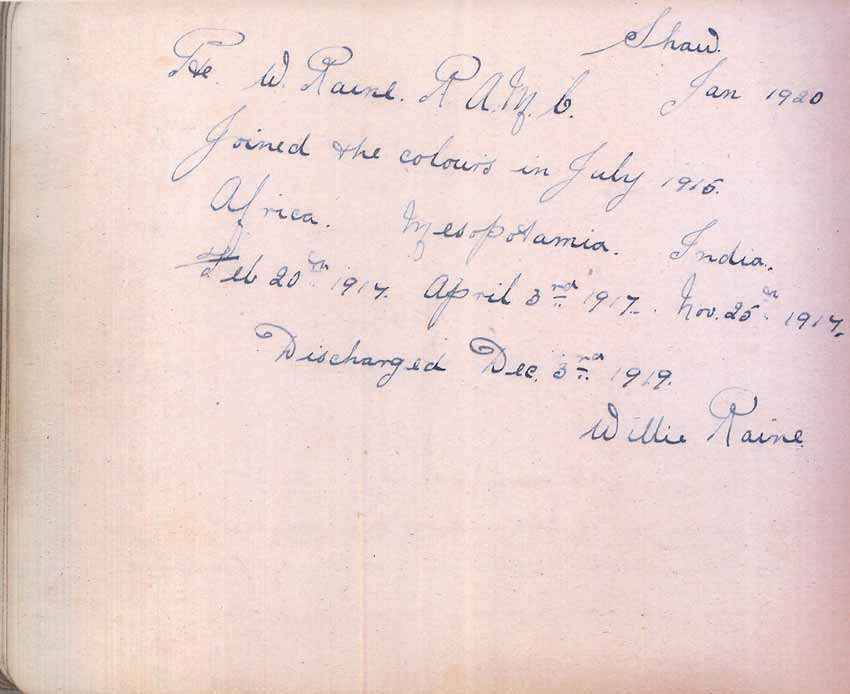 Shaw.
Pte. W. Raine. R. A. M. C. Jan 1920
Joined the colours in July 1915.
Africa. Mesopotamia. India.
Feb 20th 1917. April 3rd 1917. Nov. 25th 1917.
Discharged Dec. 3rd 1919.
Willie Raine